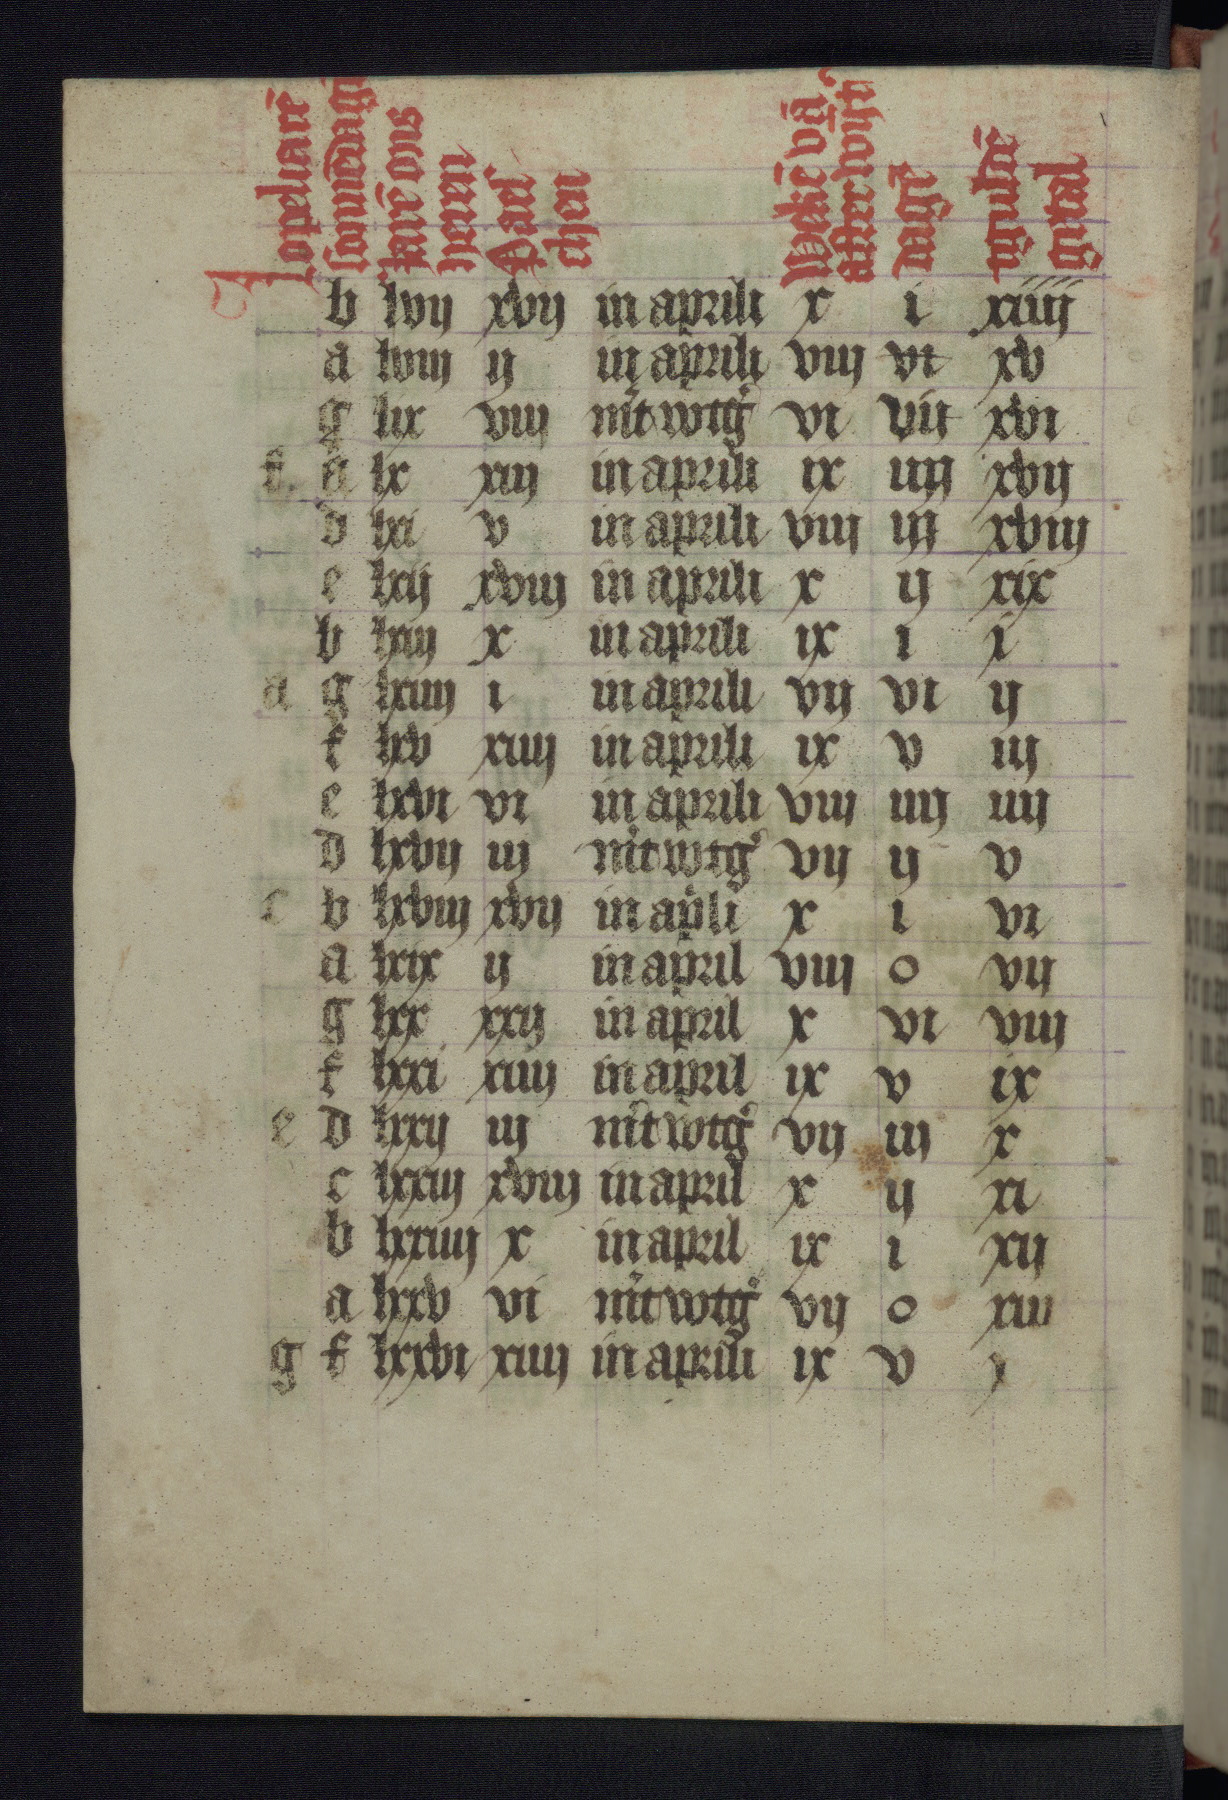 Jopeliarē
sonnēdagh
Jarē ons
heren
Paes
chen
Wekē vā
after wyt
Dagē
gulde
getal
b lvij xvij in aprili x i xiiij
a lviij ij in aprili viij vi xv
g lix viij m̄t wtg̃ vi vii xvi
f. a lx xiij in aprili ix iiij xvij
d lxi v in aprili viij iij xviij
e lxij xviij in aprili x ij xix
b lxiij x in aprili ix i i
a g lxiiij i in aprili vij vi ij
f lxv xiiij in aprili ix v iij
e lxvi vi in aprili viij iiij iiij
d lxvij iij m̄t wtg̃ vij ij v
c b lxviij xvij in ap̄li x i vi
a lxix ij in april viij o vij
g lxx xxij in april x vi viij
f lxxi xiiij in april ix v ix
e d lxxij iij m̄t wtg̃ vij iij x
c lxxiij xviij in april x ij xi
b lxxiiij x in april ix i xij
a lxxv vi m̄t wtg̃ vij o xiij
g f lxxvi xiiij in aprili ix v i